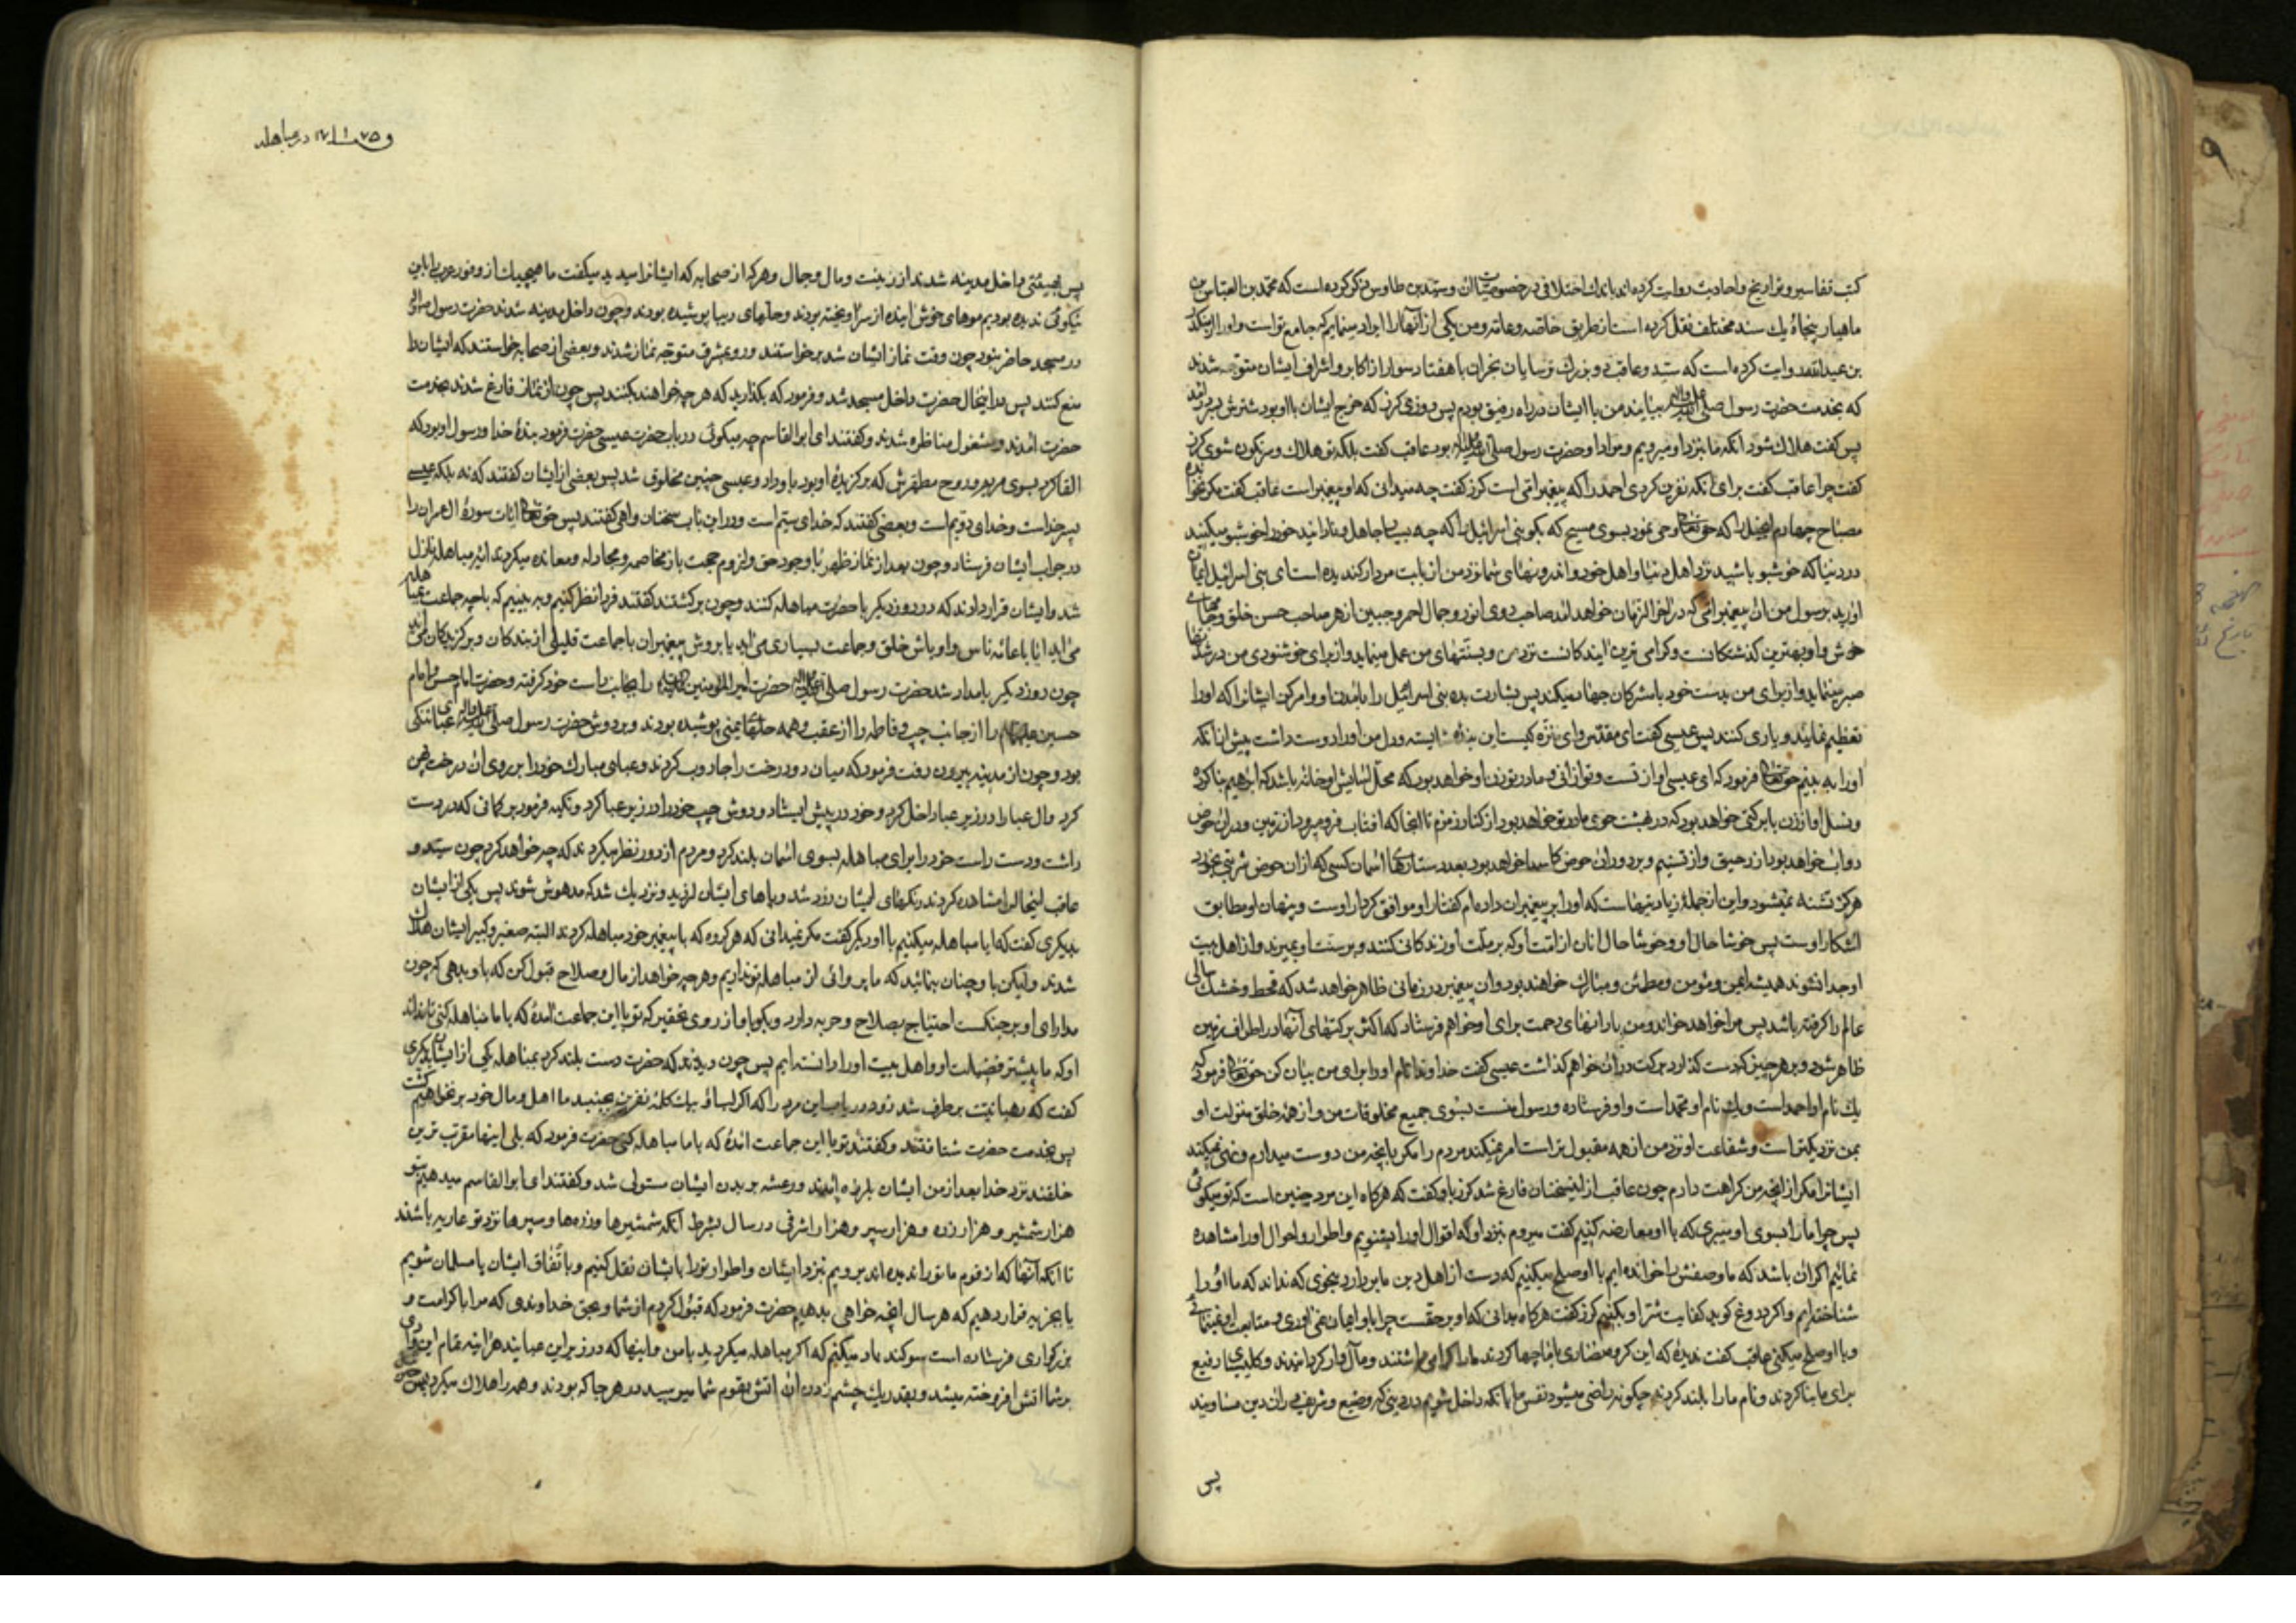 کتب تفاسیر و تواریخ و احادیث روایت کرده‌اند باندک اختلافی در خصوصیات آن و سید بن طاوس ذکر کرده است که محمد بن العباس بن
ماهیار پنجاه و یک سند مختلف نقل کرده است از طریق خاصه و عامه و من یکی از آنها را ایراد مینمایم که جامع تر است
بن عبدالله روایت کرده است که سید و عاقب دو بزرگ ترسایان نجران با هفتاد سوار از اکابر و اشراف ایشان متوجه شدند
که بخدمت حضرت رسول صلی الله علیه و آله بیایند من با ایشان در راه رفیق بودم پس روزی کرز که خرج ایشان با او بود شترش بسر درآمد
پس گفت هلاک شود آنکه ما بنزد او میرویم و مراد او حضرت رسول صلی الله علیه و آله بود عاقب گفت بلکه تو هلاک و سرنگون شوی کرز
گفت چرا عاقب گفت برای آنکه نفرین کردی احمد را که پیغمبر امی است کرز گفت چه میدانی که او پیغمبر است عاقب گفت مگر نخوانده
مصباح چهارم انجیل را که حق تعالی وحی نمود بسوی مسیح که بگو بنی اسرائیل را که چه بسیار جاهل و نادانید خود را خوشبو میکنید
در دنیا که خوشبو باشید نزد اهل دنیا و اهل خود و اندرونهای شما نزد من از بابت مردار گندیده است ای بنی اسرائیل ایمان
آورید برسول من آن پیغمبر امی که در آخر الزمان خواهد آمد صاحب روی انور و جمل احمر و جبین ازهر صاحب حسن خلق و جامهای
خوش و او بهترین گذشتگانست و گرامی ترین آیندگانست نزد من و بسنتهای من عمل مینماید و از برای خوشنودی من در شدتها
صبر مینماید و از برای من بدست خود با مشرکان جهاد میکند پس بشارت بده بنی اسرائیل را بآمدن او و امر کن ایشانرا که او را
تعظیم نمایند و یاری کنند پس عیسی گفت ای مقدس و ای منزه کیست این بنده شایسته که دل من او را دوست داشت پیش از آنکه
او را به بینم حق تعالی فرمود که ای عیسی او از تست و تو از آنی و مادر تو زن او خواهد بود
و نسل او از زن بابرکتی خواهد بود که در بهشت هووی مادر تو خواهد بود از کنار زمزم تا آنجا که آفتاب فرو میرود از زمین و در آن حوض
دو آب خواهد بود از رحیق و از تسنیم و بر دور آن حوض کاسها خواهد بود بعدد ستارهای آسمان کسی که از آن حوض شربتی بخورد
هرگز تشنه نمیشود و این از جمله زیادتیهاست که او را بر پیغمبران داده‌ام گفتار او موافق کردار اوست و پنهان او مطابق
آشکار اوست پس خوشا حال او و خوشا حال آنان از امت او که بر ملت او زندگانی کنند و بر سنت او بمیرند و از اهل بیت
او جدا نشوند همیشه ایمن و مؤمن و مطمئن و مبارک خواهند بود و آن پیغمبر در زمانی ظاهر خواهد شد که قحط و خشک سالی
عالم را گرفته باشد پس مرا خواهد خواند و من بارانهای رحمت برای او خواهم فرستاد که اکثر برکتهای آنها در اطراف زمین
ظاهر شود و بر هر چیز که دست گذارد برکت در آن خواهم گذاشت عیسی گفت خداوندا نام او را برای من بیان کن حق تعالی فرمود که
یک نام او احمد است و یک نام او محمد است و او فرستاده و رسول منست بسوی جمیع مخلوقات من و از همه خلق منزلت او
بمن نزدیکتر است و شفاعت او نزد من از همه مقبول تر است امر نمیکند مردم را مگر بآنچه من دوست میدارم و نهی نمیکند
ایشانرا مگر از آنچه من کراهت دارم چون عاقب از این سخنان فارغ شد کرز باو گفت که هرگاه این مرد چنین است که تو میگوئی
پس چرا ما را بسوی او میبری که با او معارضه کنیم گفت میروم بنزد او که اقوال او را بشنویم و اطوار و احوال او را مشاهده
نمائیم اگر آن باشد که ما وصفش را خوانده‌ایم با او صلح میکنیم که دست از اهل دین ما بردارد بنحوی که نداند که ما او را
شناخته‌ایم و اگر دروغ گوید کفایت شر او بکنیم کرز گفت هرگاه بدانی که او بر حقست چرا باو ایمان نمی آوری و متابعت او نمینمائی
و با او صلح میکنی عاقب گفت ندیده که این گروه نصاری با ما چها کردند ما را گرامی داشتند و مالدار کردانیدند و کلیسای رفیع
برای ما بنا کردند و نام ما را بلند کردند چگونه راضی میشود نفس ما بآنکه داخل شویم در دینی که وضیع و شریف در آن دین مساویند
پس
در مباهله
پس بهیئتی داخل مدینه شدند از زینت و مال و جمال و هر که از صحابه که ایشانرا میدید میگفت ما هیچیک از وفود عرب را باین
نیکوئی ندیده بودیم موهای خوش آینده از سر آویخته بودند و حله‌های زیبا پوشیده بودند و چون داخل مدینه شدند حضرت رسول
در مسجد حاضر نبود چون وقت نماز ایشان شد برخواستند و رو بمشرق متوجه نماز شدند و بعضی از صحابه خواستند که ایشان را
منع کنند پس در اینحال حضرت داخل مسجد شد و فرمود که بگذارید که هر چه خواهند بکنند پس چون از نماز فارغ شدند بخدمت
حضرت آمدند و مشغول مناظره شدند و گفتند ای ابوالقاسم چه میگوئی در باب حضرت عیسی حضرت فرمود بنده خدا و رسول او بود که
القا کرد بسوی مریم و روح مطهرش که برگزیده او بود باو داد و عیسی چنین مخلوق شد پس بعضی از ایشان گفتند که نه بلکه عیسی
پسر خداست و خدای دویم است و بعضی گفتند که خدای سیم است و در این باب سخنان واهی گفتند پس حق تعالی آیات سوره آل عمران را
در جواب ایشان فرستاد و چون بعد از نماز ظهر با وجود حق و لزوم حجت باز مخاصمه و مجادله و معانده میکردند آیه مباهله نازل
شد و ایشان قرار دادند که در روز دیگر با حضرت مباهله کنند و چون برگشتند گفتند فردا نظر کنیم و به بینیم که با چه جماعت بمباهله
می آید آیا با عامه ناس و اوباش خلق و جماعت بسیاری می آید یا بروش پیغمبران با جماعت قلیلی از بندگان و برگزیدگان می آید
چون روز دیگر بامداد شد حضرت رسول صلی الله علیه و آله حضرت امیر المؤمنین را بجانب راست خود گرفته و حضرت امام حسن و امام
حسین علیهما السلام را از جانب چپ و فاطمه را از عقب و همه حله‌های یمنی پوشیده بودند و بر دوش حضرت رسول صلی الله علیه و آله عبای تنکی
بود و چون از مدینه بیرون رفت فرمود که میان دو درخت را جاروب کردند و عبای مبارک خود را بر روی آن درخت پهن
کرد و آل عبا را در زیر عبا داخل کرد و خود در پیش ایستاد و دوش چپ خود را در زیر عبا کرد و تکیه فرمود بر کمانی که در دست
داشت و دست راست خود را برای مباهله بسوی آسمان بلند کرد و مردم از دور نظر میکردند که چه خواهد کرد چون سید و
عاقب اینحال را مشاهده کردند رنگهای ایشان زرد شد و پاهای ایشان لرزید و نزدیک شد که مدهوش شوند پس یکی از ایشان
بدیگری گفت که آیا مباهله میکنیم با او دیگر گفت مگر نمیدانی که هر گروه که با پیغمبر خود مباهله کردند البته صغیر و کبیر ایشان هلاک
شدند ولیکن باو چنان بنمائید که ما پروائی از مباهله تو نداریم و هر چه خواهد از مال و صلاح قبول کن که باو بدهی که چون
مدار او بر جنگست احتیاج بصلاح و حربه دارد و بگو باو از روی تحقیر که تو با این جماعت آمده که با ما مباهله کنی تا نداند
او که ما پیشتر فضیلت او و اهل بیت او را دانسته‌ایم پس چون دیدند که حضرت دست بلند کرد بمباهله یکی از ایشان بدیگری
گفت که رهبانیت برطرف شد زود دریاب این مرد را که اگر لب او بیک کلمه نفرین بجنبد ما اهل و مال خود بر نخواهیم گشت
پس بخدمت حضرت شتافتند و گفتند تو با این جماعت آمده که با ما مباهله کنی حضرت فرمود که بلی اینها مقرب ترین
خلقند نزد خدا بعد از من ایشان بلرزه آمدند و رعشه بر بدن ایشان مستولی شد و گفتند ای ابوالقاسم میدهیم بتو
هزار شمشیر و هزار زره و هزار سپر و هزار اشرفی در سال بشرط آنکه شمشیرها و زره‌ها و سپرها نزد تو عاریه باشند
تا آنکه آنها که از قوم ما تو را ندیده‌اند برویم بنزد ایشان و اطوار تو را بایشان نقل کنیم و باتفاق ایشان یا مسلمان شویم
یا بجزیه قرار دهیم که هر سال آنچه خواهی بدهیم حضرت فرمود که قبول کردم از شما و بحق خداوندی که مرا با کرامت و
بزرگواری فرستاده است سوگند یاد میکنم که اگر مباهله میکردید با من و اینها که در زیر این عبایند هر آینه تمام این وادی
بر شما آتش افروخته میشد و بقدر یک چشم زدن آن آتش بقوم شما میرسید در هر جا که بودند و همه را هلاک میکرد پس